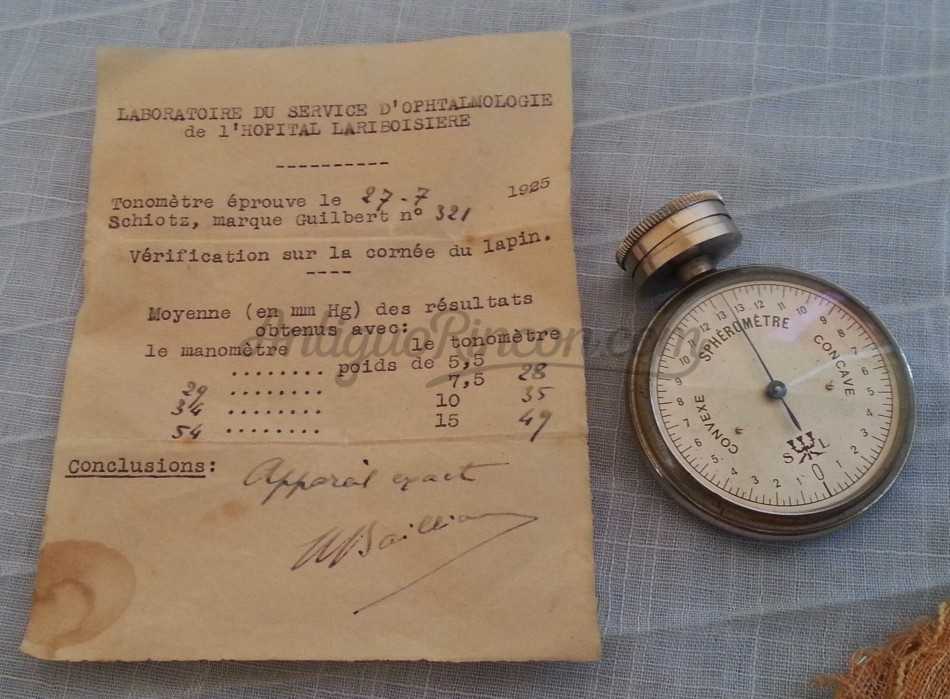 LABORATOIRE DU SERVICE D'OPHTALMOLOGIE
de l'HOPITAL LARIBOISIERE
----------
Tonomètre éprouve le 27-7 1925
Schiotz, marque Guilbert n° 321
Vérification sur la cornée du lapin.
----
Moyenne (en mm Hg) des résultats
obtenus avec:
le manomètre le tonomètre
........ poids de 5,5
29 ........ 7,5 28
34 ........ 10 35
54 ........ 15 49
Conclusions: Appareil exact
AntiqueRincon.com
SPHÉROMÈTRE
CONCAVE
CONVEXE
S L
0 1 2 3 4 5 6 7 8 9 10 11 12 13
1 2 3 4 5 6 7 8 9 10 11 12 13